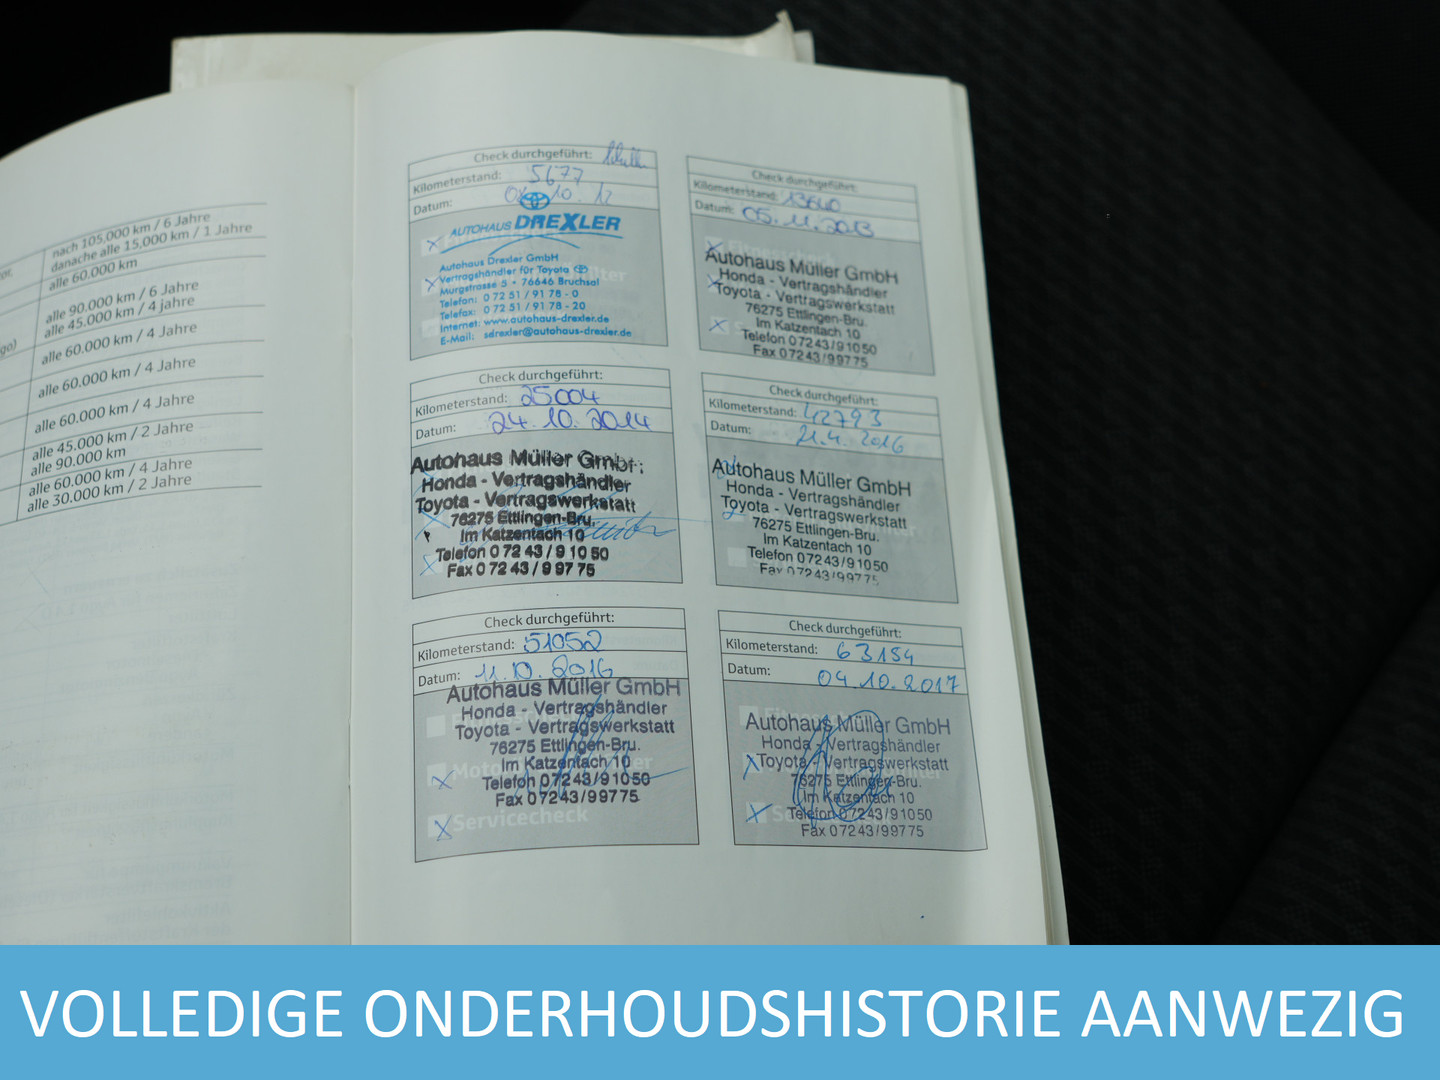 nach 105,000 km / 6 Jahre
danache alle 15,000 km / 1 Jahre
alle 60.000 km
alle 90.000 km / 6 Jahre
alle 45.000 km / 4 jahre
go)
alle 60.000 km / 4 Jahre
alle 60.000 km / 4 Jahre
alle 60.000 km / 4 Jahre
alle 45.000 km / 2 Jahre
alle 90.000 km
alle 60.000 km / 4 Jahre
alle 30.000 km / 2 Jahre
Check durchgeführt:
Kilometerstand: 5677
Datum: 10. 12
AUTOHAUS DREXLER
Autohaus Drexler GmbH
Vertragshändler für Toyota
Murgstrasse 5 • 76646 Bruchsal
Telefon: 0 72 51 / 91 78 - 0
Telefax: 0 72 51 / 91 78 - 20
Internet: www.autohaus-drexler.de
E-Mail: sdrexler@autohaus-drexler.de
Check durchgeführt:
Kilometerstand: 13640
Datum: 05. 11. 2013
Autohaus Müller GmbH
Honda - Vertragshändler
Toyota - Vertragswerkstatt
76275 Ettlingen-Bru.
Im Katzentach 10
Telefon 07243/91050
Fax 07243/99775
Check durchgeführt:
Kilometerstand: 25004
Datum: 24. 10. 2014
Autohaus Müller GmbH
Honda - Vertragshändler
Toyota - Vertragswerkstatt
76275 Ettlingen-Bru.
Im Katzentach 10
Telefon 0 72 43 / 9 10 50
Fax 0 72 43 / 9 97 75
Check durchgeführt:
Kilometerstand: 42793
Datum: 21.4. 2016
Autohaus Müller GmbH
Honda - Vertragshändler
Toyota - Vertragswerkstatt
76275 Ettlingen-Bru.
Im Katzentach 10
Telefon 07243/91050
Fax 07243/99775
Check durchgeführt:
Kilometerstand: 51052
Datum: 11. 10. 2016
Autohaus Müller GmbH
Honda - Vertragshändler
Toyota - Vertragswerkstatt
76275 Ettlingen-Bru.
Im Katzentach 10
Telefon 07243/91050
Fax 07243/99775
Servicecheck
Check durchgeführt:
Kilometerstand: 63154
Datum: 04. 10. 2017
Autohaus Müller GmbH
Honda - Vertragshändler
Toyota - Vertragswerkstatt
76275 Ettlingen-Bru.
Im Katzentach 10
Telefon 07243/91050
Fax 07243/99775
VOLLEDIGE ONDERHOUDSHISTORIE AANWEZIG